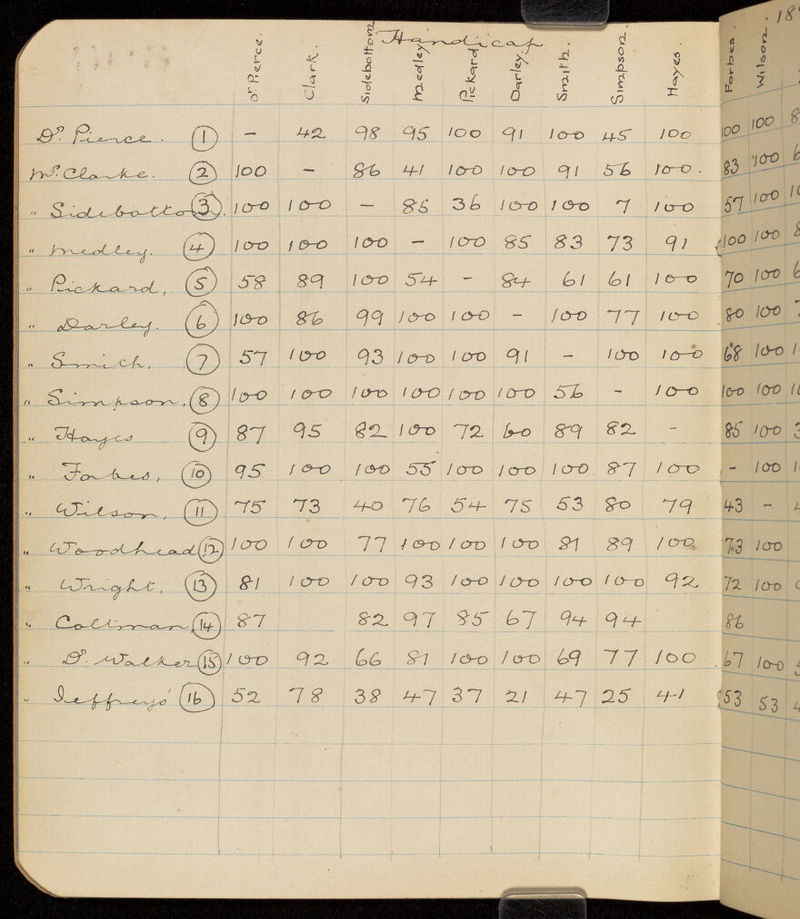 Handicap
Dr Pierce. Clark. Sidebottom Medley Pickard Darley. Smith. Simpson. Hayes. Forbes. Wilson.
Dr. Pierce. 1 - 42 98 95 100 91 100 45 100 100 100
Mr. Clarke. 2 100 - 86 41 100 100 91 56 100. 83 100
" Sidebottom 3. 100 100 - 85 36 100 100 7 100 57 100
" Medley. 4 100 100 100 - 100 85 83 73 91 100 100
" Pickard, 5 58 89 100 54 - 84 61 61 100 70 100
" Darley. 6 100 86 99 100 100 - 100 77 100 80 100
" Smith, 7 57 100 93 100 100 91 - 100 100 68 100
" Simpson. 8 100 100 100 100 100 100 56 - 100 100 100
" Hayes 9 87 95 82 100 72 60 89 82 - 85 100
" Forbes, 10 95 100 100 55 100 100 100 87 100 - 100
" Wilson, 11 75 73 40 76 54 75 53 80 79 43 -
" Woodhead 12 100 100 77 100 100 100 81 89 100 73 100
" Wright, 13 81 100 100 93 100 100 100 100 92 72 100
" Coltman, 14 87 82 97 85 67 94 94 86
" Dr. Walker 15 100 92 66 81 100 100 69 77 100 67 100
" Jeffreys' 16 52 78 38 47 37 21 47 25 41 53 53